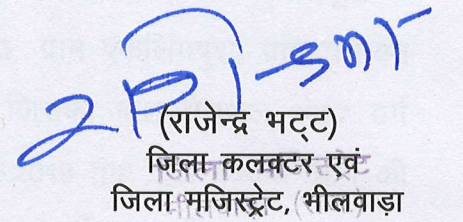 (राजेन्द्र भट्ट)
जिला कलक्टर एवं
जिला मजिस्ट्रेट, भीलवाड़ा